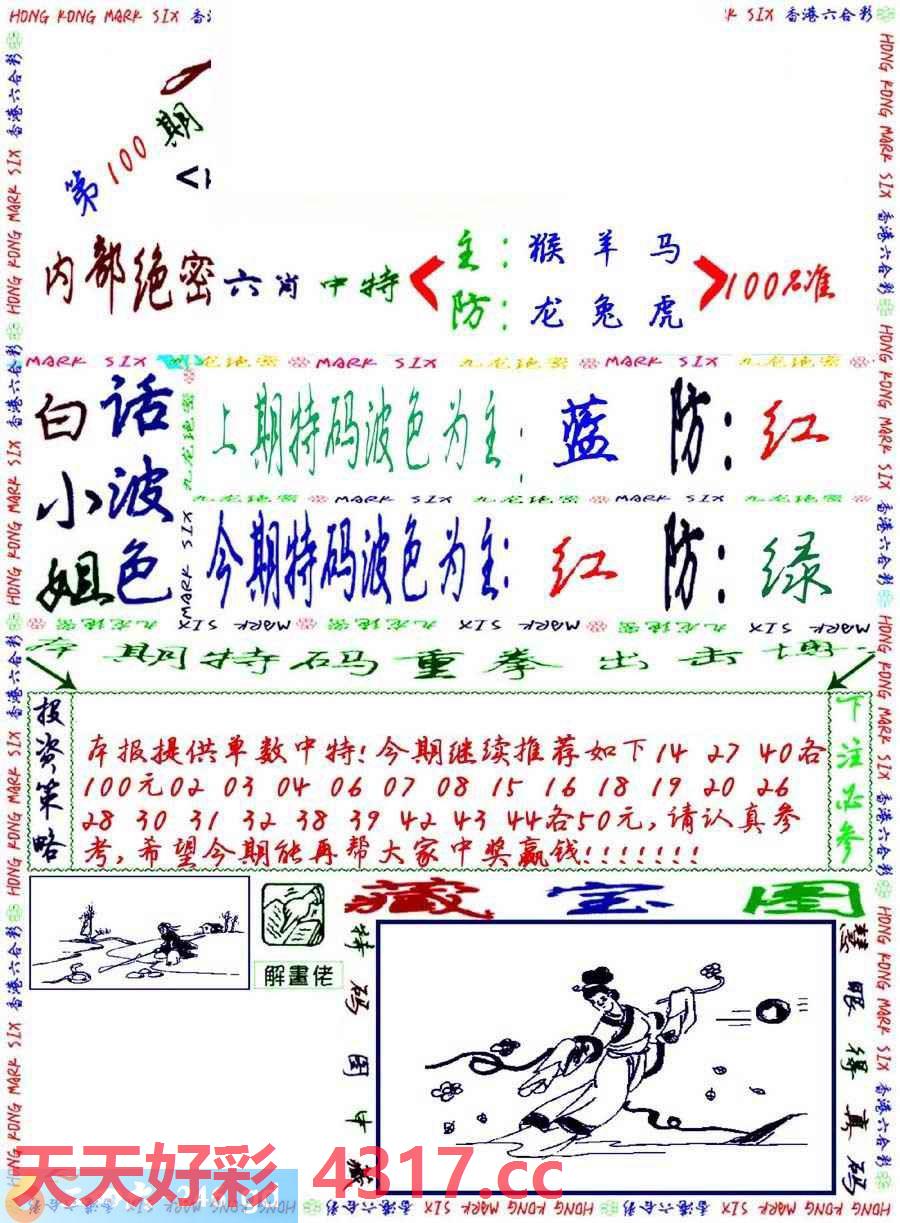 HONG KONG MARK SIX 香港六合彩
第100期
内部绝密六肖中特
主：猴羊马
防：龙兔虎
100%准
MARK SIX 九龙绝密 MARK SIX 九龙绝密 MARK SIX 九龙绝密
白话小波姐色
上期特码波色为主：蓝 防：红
九龙绝密 MARK SIX 九龙绝密 MARK SIX 九龙绝密
今期特码波色为主：红 防：绿
期特码重拳出击
投资策略
本报提供单数中特！今期继续推荐如下14 27 40各
100元02 03 04 06 07 08 15 16 18 19 20 26
28 30 31 32 38 39 42 43 44各50元，请认真参
考，希望今期能再帮大家中奖赢钱！！！！！！！
下注必参
解畫佬
藏宝图
特码图中藏
慧眼得真码
天天好彩 4317.cc